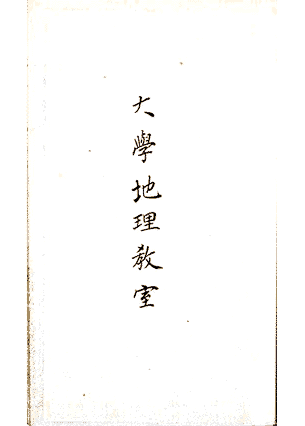 大學地理教室